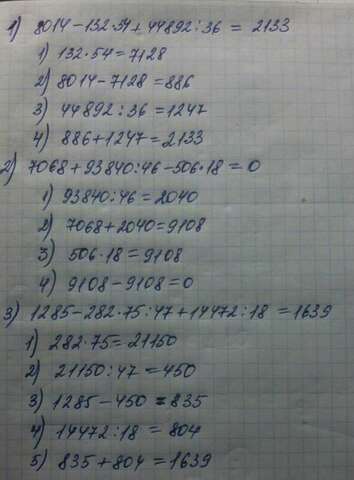 1) 8014-132·54+44892:36 = 2133
1) 132·54=7128
2) 8014-7128=886
3) 44892:36=1247
4) 886+1247=2133
2) 7068+93840:46-506·18=0
1) 93840:46=2040
2) 7068+2040=9108
3) 506·18=9108
4) 9108-9108=0
3) 1285-282·75:47+14472:18=1639
1) 282·75=21150
2) 21150:47=450
3) 1285-450=835
4) 14472:18=804
5) 835+804=1639